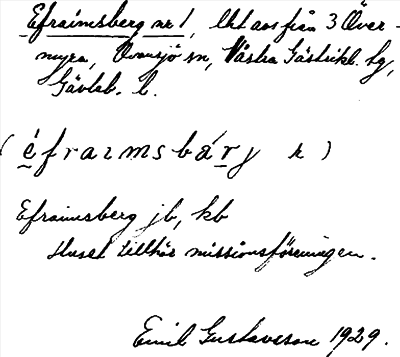 Efraimsberg nr 1, lht avs från 3 Över-
myra, Ovansjö sn, Västra Gästrikl. tg,
Gävleb. l.
(éfraimsbárj r)
Efraimsberg jb, kb
Huset tillhör missionsföreningen.
Emil Gustavsson 1929.